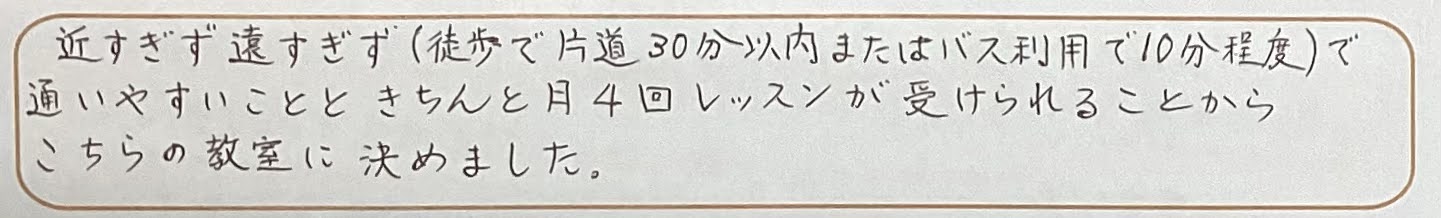 近すぎず遠すぎず(徒歩で片道30分以内またはバス利用で10分程度)で
通いやすいことときちんと月4回レッスンが受けられることから
こちらの教室に決めました。